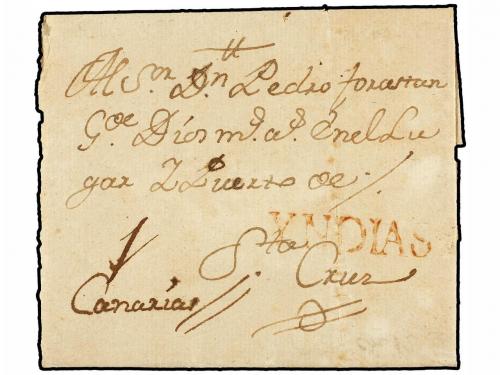 Al S.or D.n Pedro forastan
G.de Dios m.s a.s En el Lu
gar Y Puerto de
YNDIAS
Sta
Cruz
Canarias